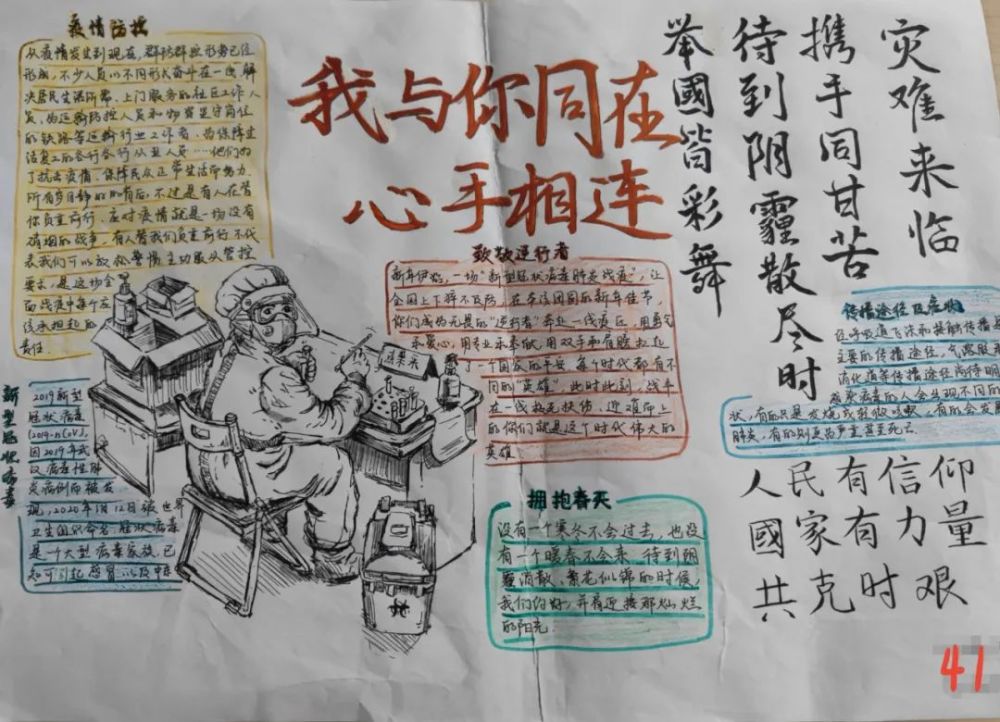 疫情防控
从疫情发生到现在,群防群控形势已经
形成,不少人员以不同形式奋斗在一线,解
决居民生活所需、上门服务的社区工作人
员,为运输防控人员和物资坚守岗位
的铁路等运输行业工作者、为保障生
活复工的各行各行从业人员……他们为
了抗击疫情、保障民众正常生活而努力.
所有岁月静的的背后,不过是有人在替
你负重前行.应对疫情就是一场没有
硝烟的战争,有人替我们负重前行不代
表我们可以放松警惕主动服从管控
要求,是这场全
民战疫中每个应
该承担起的
责任.
新型冠状病毒
2019新型
冠状病毒
(2019-nCoV),
因2019年武
汉病毒性肺
炎病例而被发
现,2020年1月12日被世界
卫生组织命名.冠状病毒
是一个大型病毒家族,已
知可引起感冒以及中东
我与你同在
心手相连
致敬逆行者
新年伊始,一场“新型冠状病毒肺炎战疫”,让
全国上下猝不及防,在本该团圆的新年佳节,
你们成为无畏的“逆行者”奔赴一线疫区,用勇气
永爱心,用专业永奉献,用双手和肩膀扛起
了一个国家的平安.每个时代都有不
同的“英雄”此时此刻,战斗
在一线救死扶伤、迎难而上
的你们就是这个时代伟大的
英雄.
拥抱春天
没有一个寒冬不会过去,也没
有一个暖春不会来.待到阴
霾消散、繁花似锦的时候,
我们约好,并肩迎接那灿烂
的阳光.
灾难来临
携手同甘苦
待到阴霾散尽时
举國皆彩舞
传播途径及症状
经呼吸道飞沫和接触传播是
主要的传播途径,气溶胶和
消化道等传播途径尚待明
感染病毒的人会出现不同的症
状,有的只是发烧或轻微咳嗽,有的会发展
肺炎,有的则更为严重甚至死亡.
人民有信仰
國家有力量
共克时艰
41